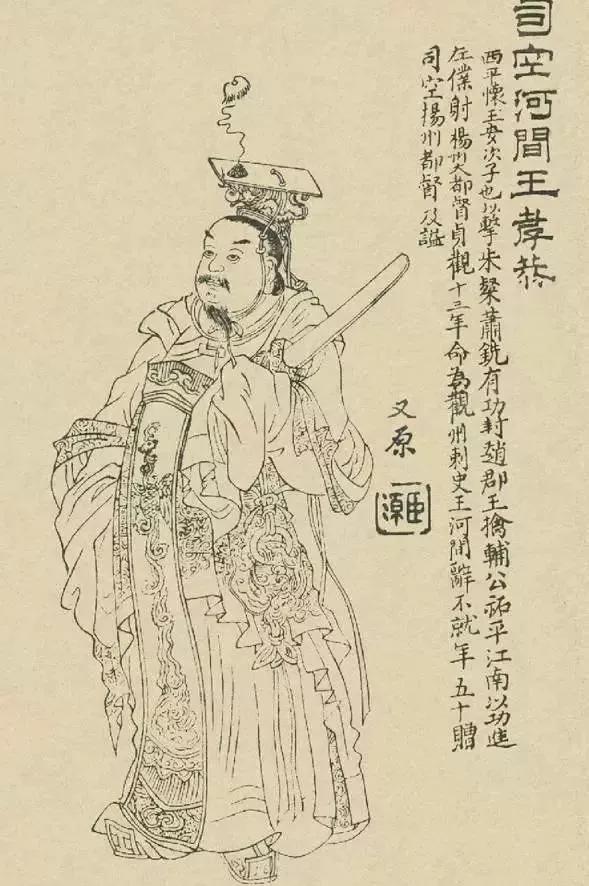 司空河間王孝恭
西平懷王安次子也以擊朱粲蕭銑有功封趙郡王擒輔公祏平江南以功進
左僕射楊州大都督貞觀十三年命為觀州刺史王河間辭不就年五十贈
司空揚州都督及謚
又原
臣源